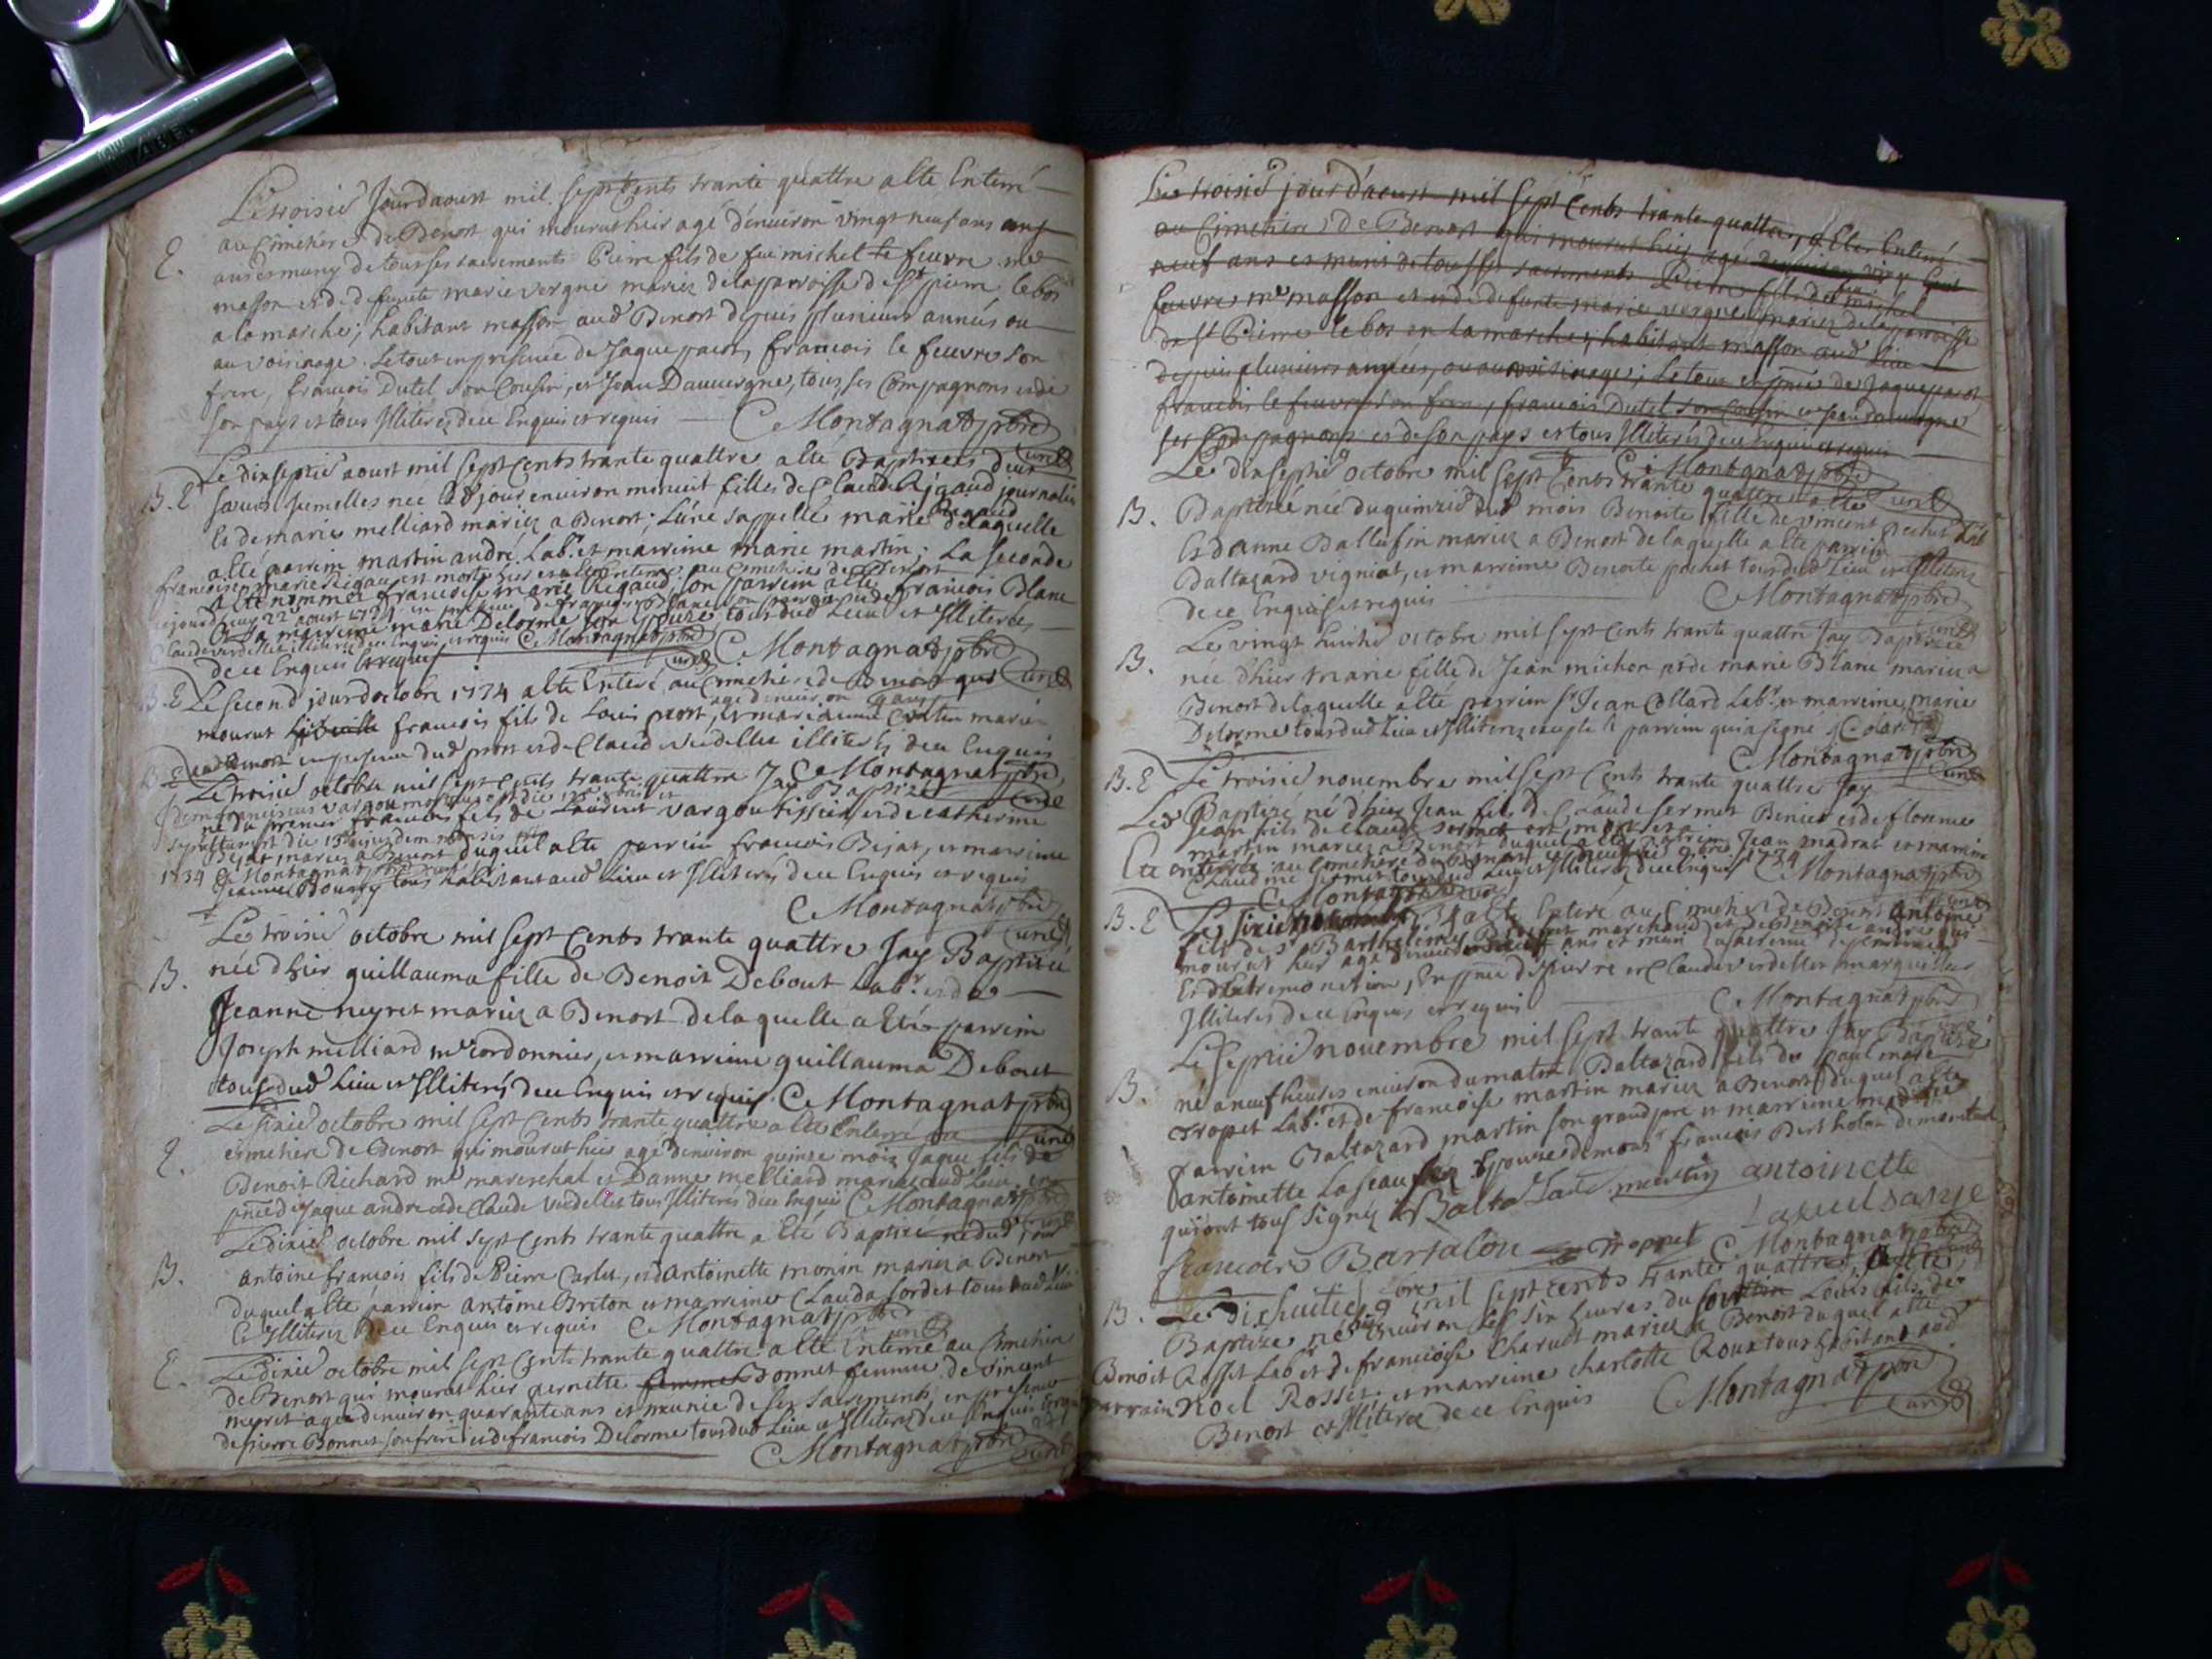 Le troisie Jour daoust mil sept cents trante quattre a ete Enterré
E. au Cimetiere de Benost qui mourut hier agé denuiron vingt neuf ans
et muny de tous ses sacrements Pierre fils de feu michel le feuvre me
masson et de defunte marie vergne mariez de la parroisse de st pierre le bos
a la marche; habitant masson aud Benost depuis plusieurs années ou
au voisinage. Le tout en presence de Jaque parot, francois le feuvre son
frere, francois Dutel son Cousin, et Jean Dauuergne, tous ses Compagnons et de
son pays et tous Illiterez de ce Enquis et requis C Montagnat pbre
curé
B. E Le dixseptie aoust mil sept Cents trante quattre a ete Baptisees deux
sœurs Jumelles née led jour enuiron minuit filles de Claude Rigaud journalier
et de marie melliard mariez a Benost; L'une sappelle marie Rigaud de laquelle
a été parrim martin andré Labr. et marreine marie martin; La seconde
francoise marie Rigaud est morte hier et a ete Enterré au Cimetiere de Benost
a ete nommée francoise marie Rigaud son parrim a ete francois Blanc
cejourdhuy 22 aoust 1734 en presence de francois Blanc son parrim et de
et sa marreine marie Delorme son Epouze tous dud Lieu et Illiterez
Claude verdellet illiterez de ce Enquis et requis C Montagnat pbre
de ce Enquis et requis C Montagnat pbre
curé curé
B. E Le second jour doctobre 1734 a ete Enteré au Cimetiere de Benost qui
agé denuiron 9 ans
mourut francois fils de Louis prost, et marianne mariez
aud Benost en presence dud prost et de Claude verdellet illiterés de ce Enquis
C Montagnat pbre
B E Le troisie octobre mil sept cents trante quattre Jay Baptizé
curé
Idem franciscus vargou mortuus est die 12 octobris et
né du premier francois fils de Laurent vargou tissier et de catherine
sepultus est die 13 ejusdem mensis
Bejat mariez a Benost duquel a ete parrim francois Bejat, et marreine
1734 C Montagnat pbre curé
Jeanne Bourgy tous habitant aud Lieu et Illiterés de ce Enquis et requis
C Montagnat pbre
curé
Le troisie octobre mil sept Cents trante quattre Jay Baptisée
B. née dhier guillauma fille de Benoit Debout Labr. et de
Jeanne neyret mariez a Benost de laquelle a Eté parrim
Joseph melliard me cordonnier, et marreine guillauma Debout
tous dud Lieu et Illiterés de ce Enquis et requis C Montagnat pbre
curé
Le sixie octobre mil sept Cents trante quattre a ete Enterré au
E. cimetiere de Benost qui mourut hier agé denuiron quinze mois Jaque fils de
Benoit Richard me mareschal et Danne melliard mariez aud Lieu, en
pnce de Jaque andre et de Claude verdellet tous Illiterés de ce Enquis C Montagnat pbre
curé
Le dixie octobre mil sept Cents trante quattre a Eté Baptisé né dud jour
B. antoine francois fils de Pierre Carlet, et d antoinette monin mariez a Benost
duquel a Eté parrim antoine Breton et marreine Clauda fordet tous dud Lieu
et Illiterez de ce Enquis et requis C Montagnat pbre
curé
E. Le dixie octobre mil sept Cents trante quattre a ete Enterré au Cimetiere
de Benost qui mourut hier pernette femme Bonnet femme de vincent
meyret agée denuiron quarante ans et munie de ses sacrements en presence
de pierre Bonnet son frere et de francois Delorme tous dud Lieu et Illiterez de ce Enquis et requis
C Montagnat pbre
curé
Le troisie jour d'aoust mil sept Cents trante quattre, a ete Enterré
au Cimetiere de Benost qui mourut hier agé denuiron vingt
neuf ans et muni de tous ses sacrements Pierre fils de feu michel
feuvre me masson et de defunte marie vergne mariez de la parroisse
de st Pierre le bos en la marche; habitant masson aud Lieu
depuis plusieurs années, ou au voisinage; Le tout en pnce de Jaque parot
francois le feuvre son frere, francois Dutel son Cousin et Jean dauuergne
ses Compagnons et de son pays et tous Illiterés de ce Enquis et requis
C Montagnat pbre
curé
Le dixseptie octobre mil sept Cents trante quattre a ete
B. Baptisée née du quinzie dud mois Benoite fille de vincent pochet Lab
et danne Ballufin mariez a Benost de laquelle a ete parrim
Baltazard vigniat, et marreine Benoite pochet tous dud Lieu et Illiterez
de ce Enquis et requis C Montagnat pbre
curé
Le vingt huitie octobre mil sept cents trante quattre Jay Baptisée
B. née dhier marie fille de Jean michon et de marie Blanc mariez a
Benost de laquelle a Eté parrim sr Jean Collard Labr. et marreine marie
Delorme tous dud Lieu et Illiterez excepte le parrim qui a signé J Colard
C Montagnat pbre
curé
B. E Le troisie nouembre mil sept Cents trante quattre Jay
Baptize né dhier Jean fils de Claude sermet Benier et de florence
Led Jean fils de Claude sermet est mort et a
martin mariez a Benost duquel a ete parrim Jean madras et marreine
Eté enterré au Cimetiere de Benost le neufvie 9bre 1734
Claudine sermet tous dud Lieu et Illiterez de ce Enquis C Montagnat pbre
C Montagnat curé
B. E Le sixie nouembre 1734 a ete Enteré au Cimetiere de Benost antoine
fils de sr Barthelemy marchand et de andre qui
mourut hier agé denuiron ans et muni du sacrement de penitence
et d'extremonction, En pnce de pierre et Claude verdellet marguillier
Illiterés de ce Enquis et requis C Montagnat pbre
Le septie nouembre mil sept trante quattre Jay Baptisé
B. né a neuf heures enuiron du matin Baltazard fils de paul
tropet Labr. et de francoise martin mariez a Benost duquel a ete
parrim Baltazard martin son grand pere et marreine
antoinette Epouse de monsr francois Bertholat
qui ont tous signez Baltazard martin antoinette
francois Bartalon Troppet C Montagnat pbre
curé
B. Le dixhuitie 9bre mil sept cents trante quattre, a ete
Baptize né dhier enuiron les six heures du soir Louis fils de
Benoit Rosset Labr et de francoise Charuet mariez a Benost duquel a ete
parrain Noel Rosset; et marreine charlotte Roux tous habitant aud
Benost et Illiterez de ce Enquis C Montagnat pbre
curé